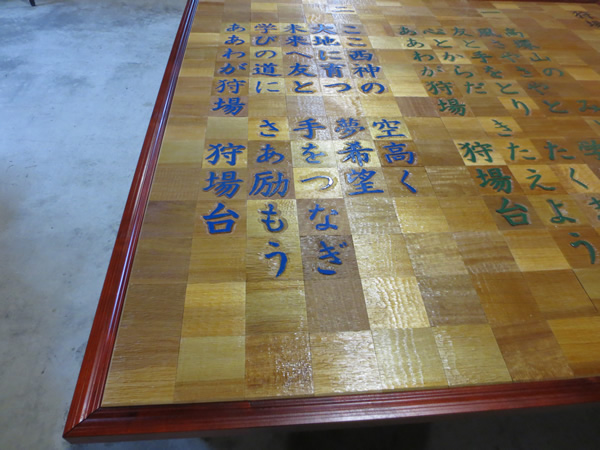 高塚山の
友と手をとり
心とからだ きたえよう
ああわが狩場 狩場台
二
ここ西神の 空高く
大地に育つ 夢希望
未来へ友と 手をつなぎ
学びの道に さあ励もう
ああわが狩場 狩場台